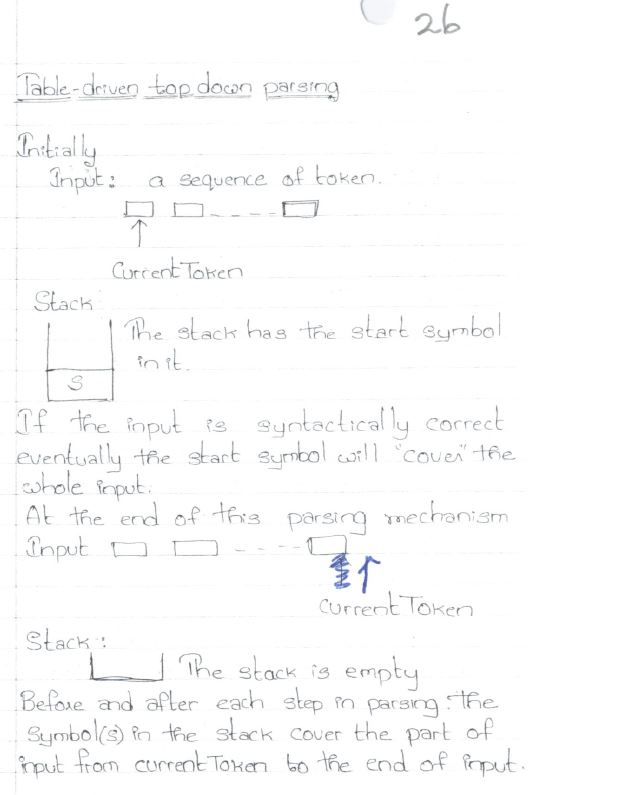 26
Table-driven top down parsing
Initially
Input: a sequence of token.
Current Token
Stack:
The stack has the start symbol
in it.
S
If the input is syntactically correct
eventually the start symbol will "cover" the
whole input.
At the end of this parsing mechanism
Input
Current Token
Stack:
The stack is empty
Before and after each step in parsing: the
symbol(s) in the stack cover the part of
input from current Token to the end of input.